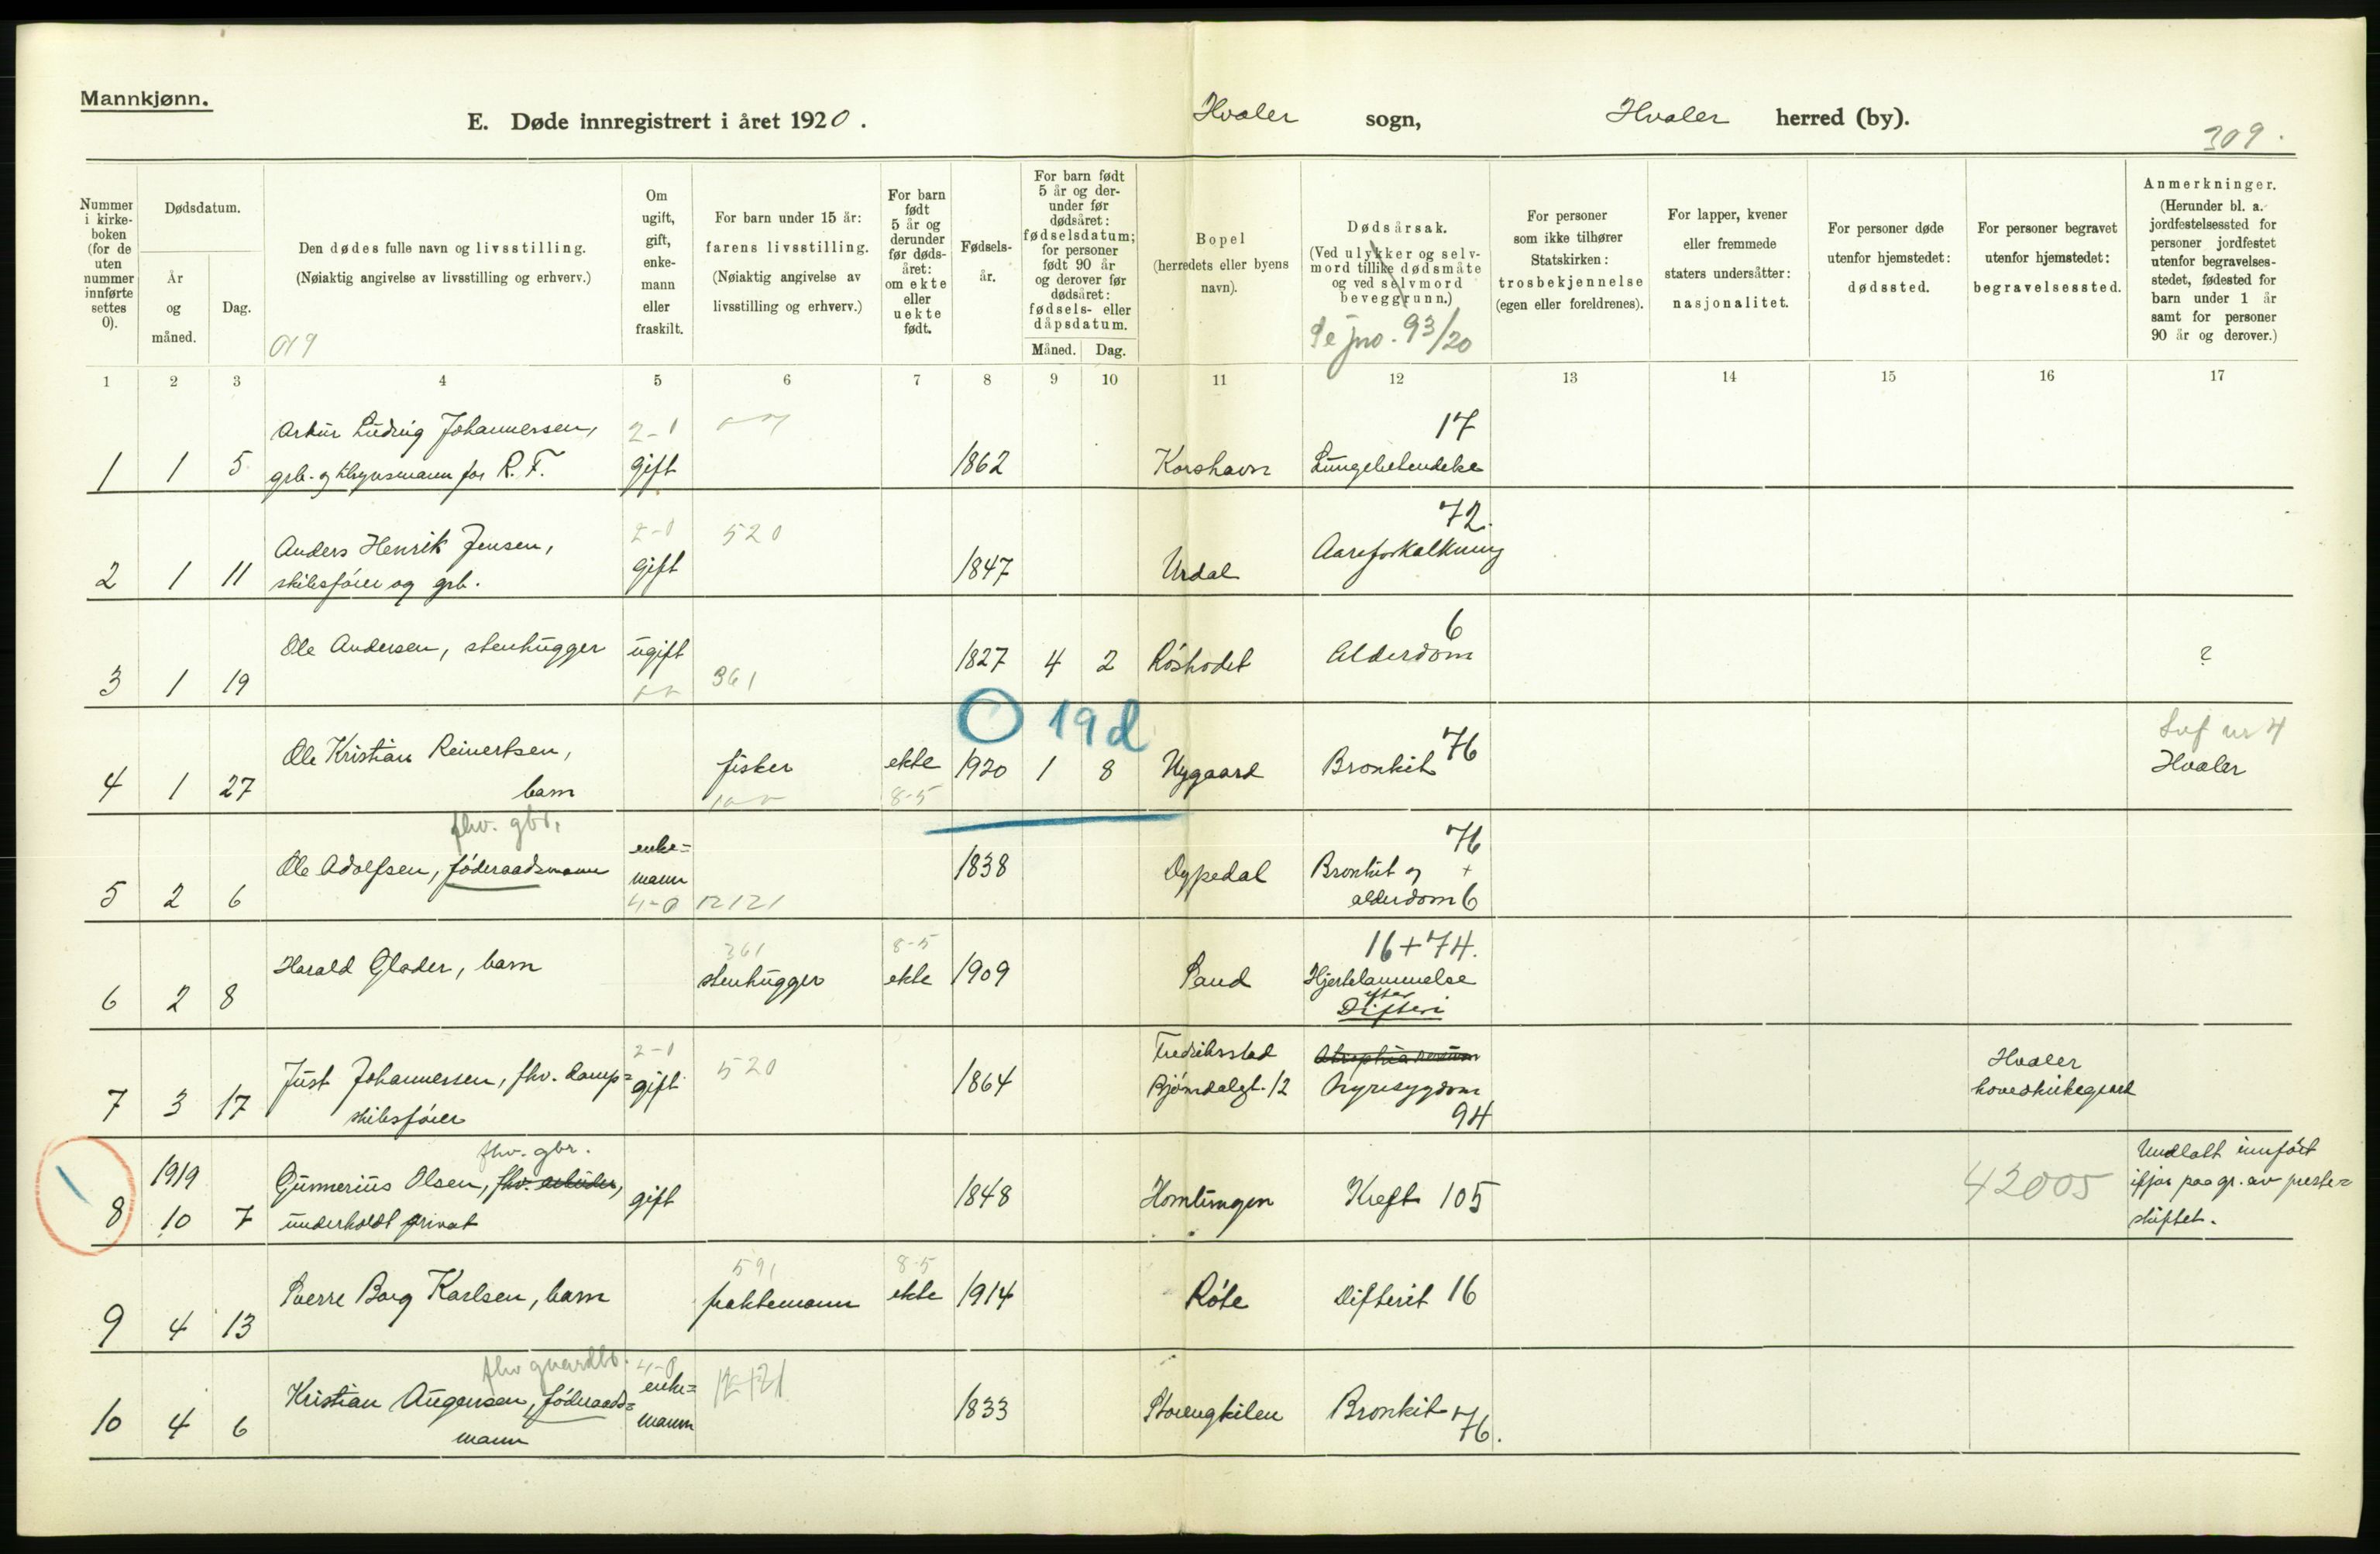 Mannkjønn.
E. Døde innregistrert i året 1920.
Hvaler sogn,
Hvaler herred (by).
309.
Nummer i kirke-boken (for de uten nummer innførte settes 0).
Dødsdatum.
År og måned.
Dag.
Den dødes fulle navn og livsstilling.
(Nøiaktig angivelse av livsstilling og erhverv.)
Om ugift, gift, enke-mann eller fraskilt.
For barn under 15 år:
farens livsstilling.
(Nøiaktig angivelse av livsstilling og erhverv.)
For barn født 5 år og derunder før døds-året: om ekte eller uekte født.
Fødsels-år.
For barn født 5 år og der-under før dødsåret: fødselsdatum; for personer født 90 år og derover før dødsåret: fødsels- eller dåpsdatum.
Måned.
Dag.
Bopel
(herredets eller byens navn).
Dødsårsak.
(Ved ulykker og selv-mord tillike dødsmåte og ved selvmord beveggrunn.)
Se jno. 93/20
For personer som ikke tilhører Statskirken:
trosbekjennelse
(egen eller foreldrenes).
For lapper, kvener eller fremmede staters undersåtter:
nasjonalitet.
For personer døde utenfor hjemstedet:
dødssted.
For personer begravet utenfor hjemstedet:
begravelsessted.
Anmerkninger.
(Herunder bl. a. jordfestelsessted for personer jordfestet utenfor begravelses-stedet, fødested for barn under 1 år samt for personer 90 år og derover.)
1 2 3 4 5 6 7 8 9 10 11 12 13 14 15 16 17
Artur Ludvig Johannersen, 2-1 17
1 1 5 grb. og for R. F. gift 1862 Korshavn Lungebetendelse
2-0 520 72.
Anders Henrik Jensen, Aareforkalkning
2 1 11 skibsfører og grb. gift 1847 Urdal
6
Ole Andersen, stenhugger ugift 1827 4 2 Røshodet Alderdom ?
3 1 19 361
O 19 d
nr 4
Ole Kristian Reinertsen, 76
4 1 27 barn fisker ekte 1920 1 8 Nygaard Bronkit Hvaler
8-5
fhv. gbr. 76
Ole Adolfsen, føderaadsmann enke= 1838 Dypedal Bronkit og +
5 2 6 mann alderdom 6
4-0 12121
361 8-5 16+74.
Harald Glader, barn stenhugger ekte 1909 Sand Hjertelammelse
6 2 8 efter
Difteri
2-1 520 Fredriksstad Hvaler
Just Johannersen, fhv. damp= gift 1864 Bjørndalgt. 12 Nyresygdom hovedkirkegaard
7 3 17 skibsfører 94
fhv. gbr. Undlatt innført
1919 Gunnerius Olsen, fhv. arbeider, gift 1848 Homlungen Kreft 105 42005 ifjor paa gr. av preste=
8 10 7 underholdt privat skiftet.
591 8-5
Sverre Borg Karlsen, barn fraktemann ekte 1914 Røte Difterit 16
9 4 13
fhv gaardbr. 4-0 12121
Kristian Augensen, føderaads= enke= 1833 Storengkilen Bronkit
10 4 6 mann mann 76.